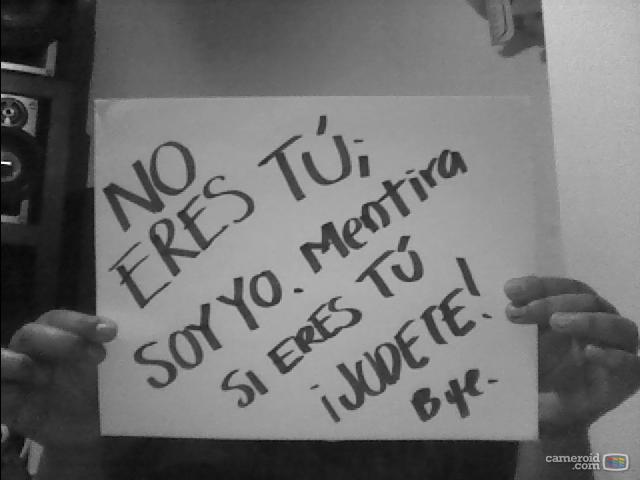 NO
ERES TÚ;
SOY YO. Mentira
SI ERES TÚ
¡JODETE!
Bye.
cameroid
.com